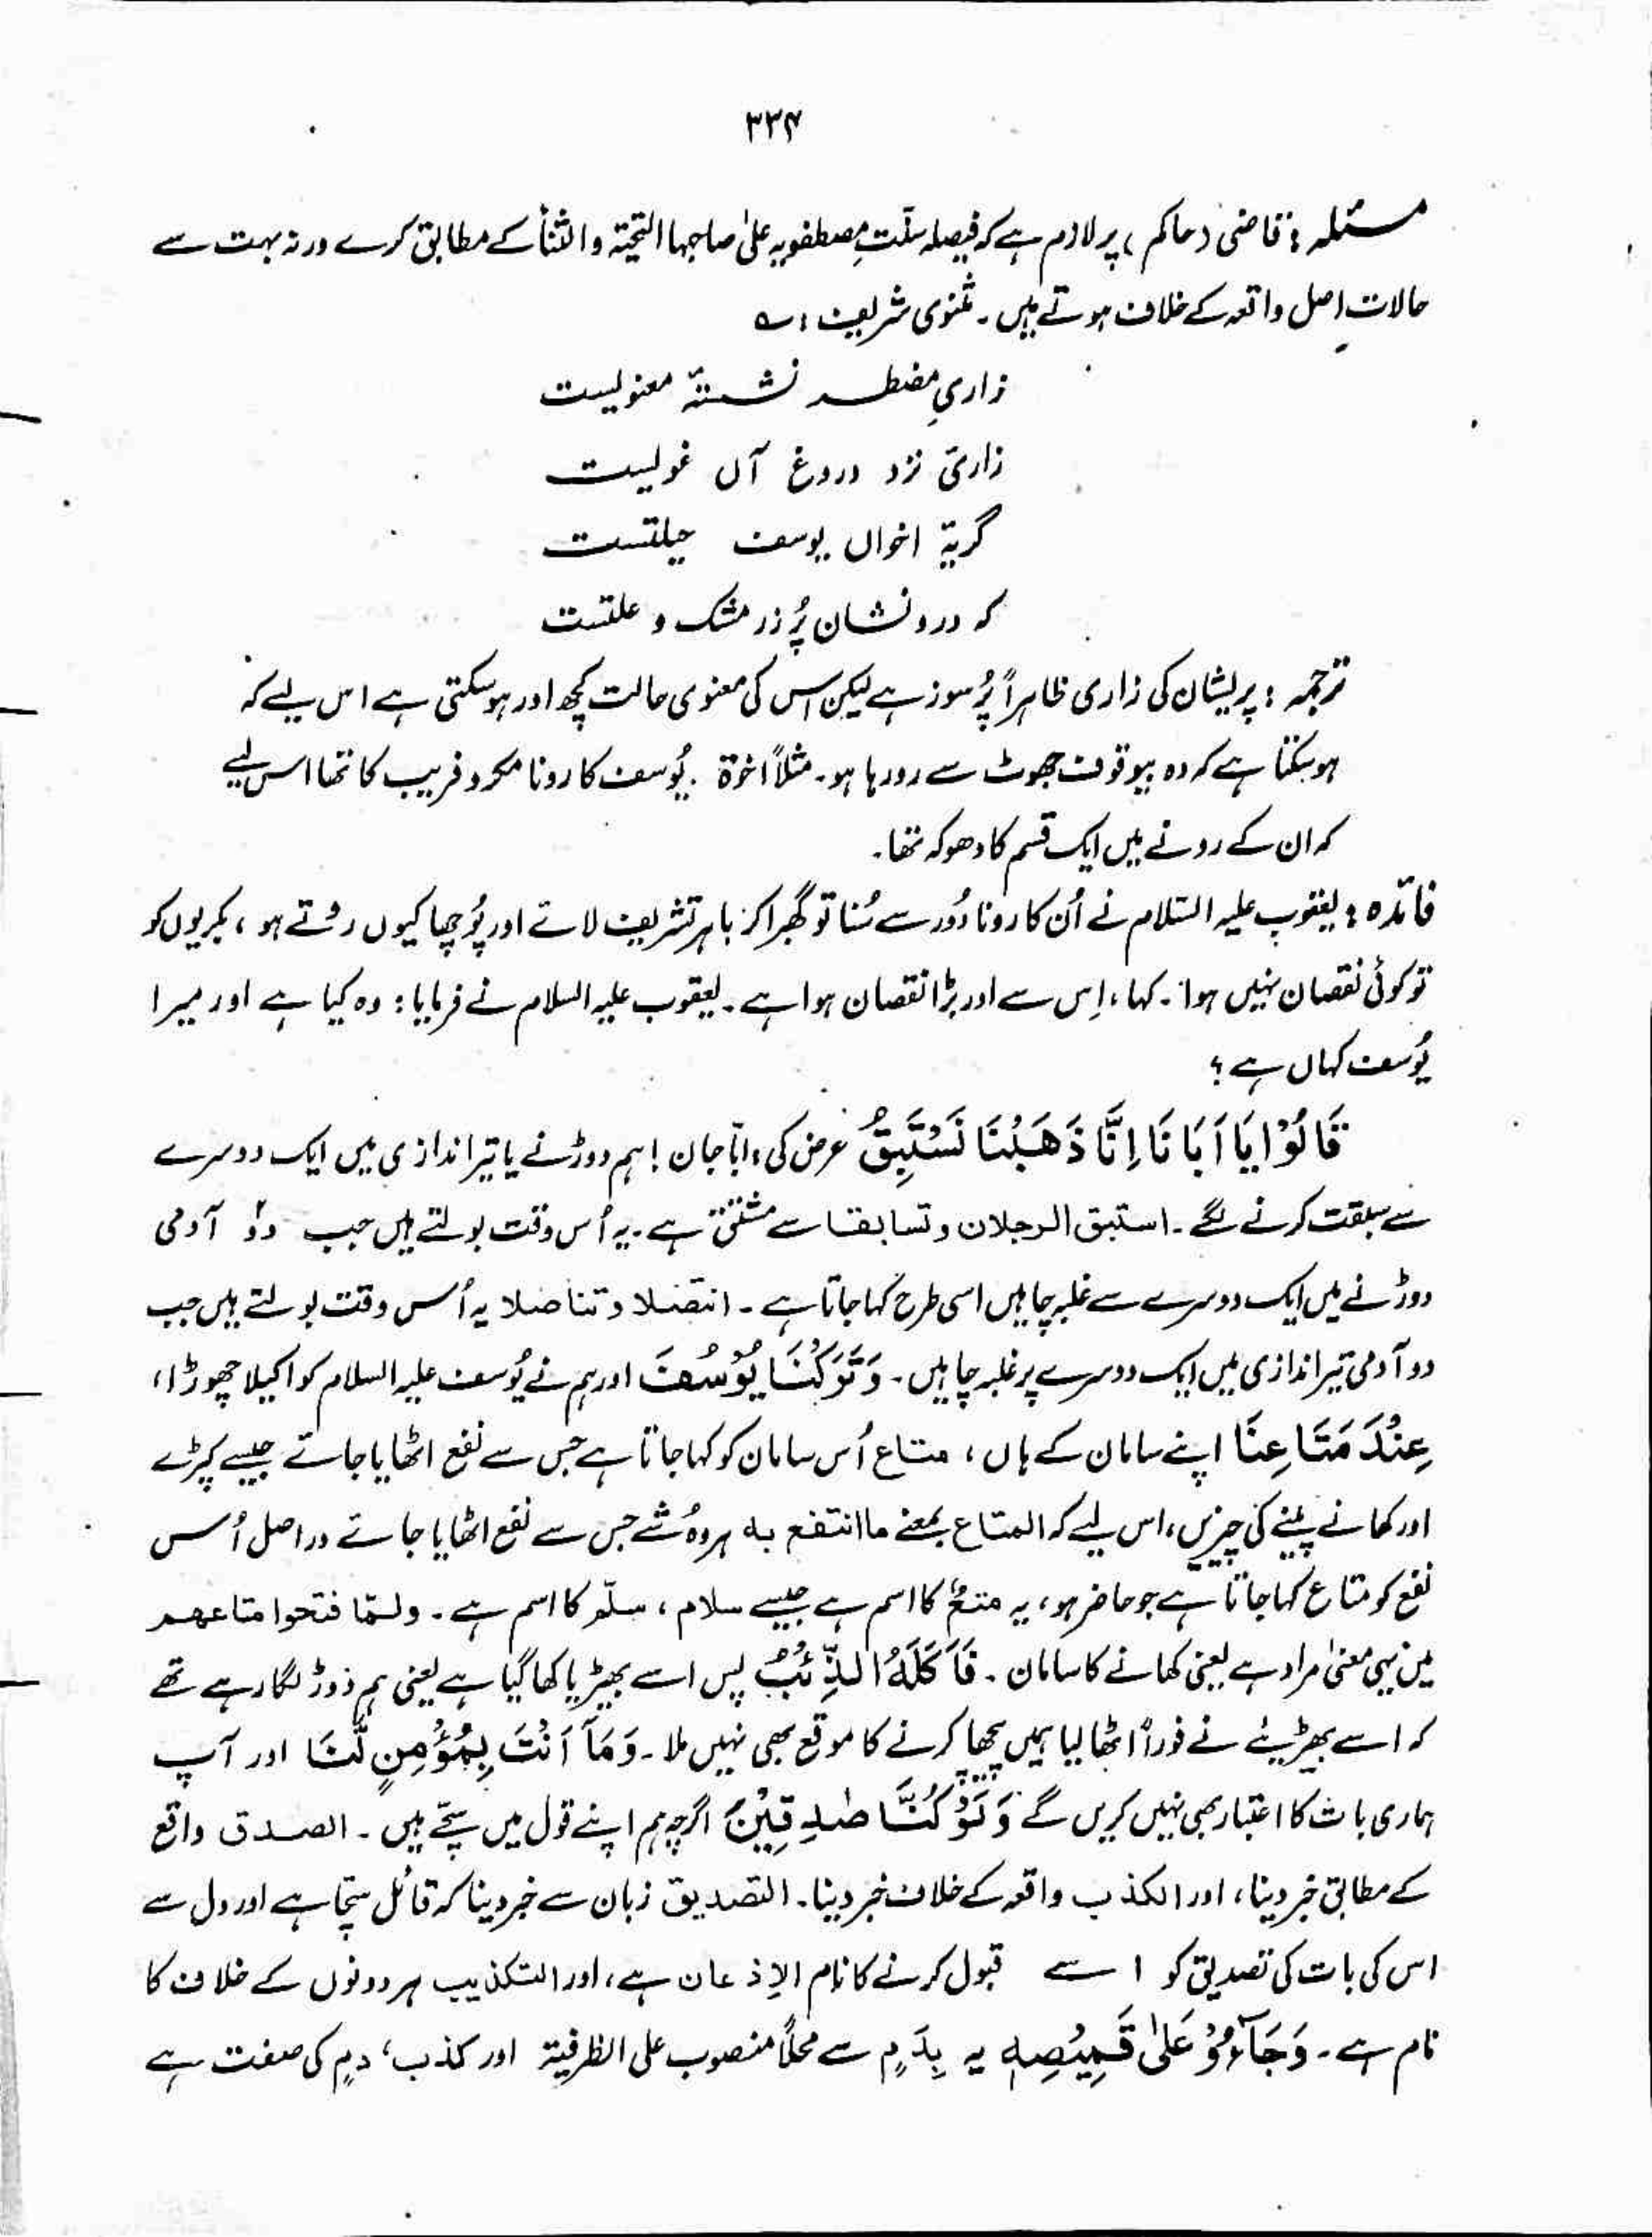 ۳۳۴
مسئلہ : قاضی (حاکم) پر لازم ہے کہ فیصلہ ملّتِ مصطفویہ علیٰ صاحبہا التحیۃ والثنأ کے مطابق کرے ورنہ بہت سے
حالات اصل واقعہ کے خلاف ہوتے ہیں۔ مثنوی شریف : ؎
زاریِ مضطر نشستۂ معنویست
زاریٔ نزد دروغ آں غویست
گریۂ اخواں یوسف حیلتست
کہ درونشان پُر زر مشک و علتست
ترجمہ : پریشان کی زاری ظاہراً پُرسوز ہے لیکن اس کی معنوی حالت کچھ اور ہوسکتی ہے اس لیے کہ
ہوسکتا ہے کہ وہ بیوقوف جھوٹ سے رو رہا ہو۔ مثلاً اخوۃ یُوسف کا رونا مکر و فریب کا تھا اس لیے
کہ ان کے رونے میں ایک قسم کا دھوکہ تھا۔
فائدہ : یعقوب علیہ السّلام نے اُن کا رونا دُور سے سُنا تو گھبرا کر باہر تشریف لائے اور پُوچھا کیوں روتے ہو ، بکریوں کو
تو کوئی نقصان نہیں ہوا۔ کہا ، اِس سے اور بڑا نقصان ہوا ہے۔ یعقوب علیہ السلام نے فرمایا : وہ کیا ہے اور میرا
یُوسف کہاں ہے ؟
قَالُوْا یَا اَبَانَا اِنَّا ذَهَبْنَا نَسْتَبِقُ عرض کی ، ابّا جان ! ہم دوڑنے یا تیر اندازی میں ایک دوسرے
سے سبقت کرنے لگے۔ استبق الرجلان و تسابقا سے مشتق ہے۔ یہ اُس وقت بولتے ہیں جب دوٗ آدمی
دوڑنے میں ایک دوسرے سے غلبہ چاہیں اسی طرح کہا جاتا ہے۔ انتضلا و تناضلا یہ اُس وقت بولتے ہیں جب
دو آدمی تیر اندازی میں ایک دوسرے پر غلبہ چاہیں۔ وَتَرَکْنَا یُوْسُفَ اور ہم نے یُوسف علیہ السلام کو اکیلا چھوڑا ،
عِنْدَ مَتَاعِنَا اپنے سامان کے ہاں ، متاع اُس سامان کو کہا جاتا ہے جس سے نفع اٹھایا جائے جیسے کپڑے
اور کھانے پینے کی چیزیں ، اس لیے کہ المتاع بمعنے ما انتفع به ہر وہُ شے جس سے نفع اٹھایا جائے دراصل اُس
نفع کو متاع کہا جاتا ہے جو حاضر ہو ، یہ متعٌ کا اسم ہے جیسے سلام ، سلّم کا اسم ہے۔ ولمّا فتحوا متاعهم
میں یہی معنیٰ مراد ہے یعنی کھانے کا سامان۔ فَاَکَلَهُ الذِّئْبُ پس اسے بھیڑیا کھا گیا ہے یعنی ہم دوڑ لگا رہے تھے
کہ اسے بھیڑیئے نے فوراً اٹھا لیا ہمیں پیچھا کرنے کا موقع بھی نہیں ملا۔ وَمَآ اَنْتَ بِمُؤْمِنٍ لَّنَا اور آپ
ہماری بات کا اعتبار بھی نہیں کریں گے وَلَوْ کُنَّا صٰدِقِیْنَ اگرچہ ہم اپنے قول میں سچّے ہیں۔ الصدق واقع
کے مطابق خبر دینا ، اور الکذب واقعہ کے خلاف خبر دینا۔ التصدیق زبان سے خبر دینا کہ قائل سچّا ہے اور دل سے
اس کی بات کی تصدیق کو اسے قبول کرنے کا نام الاِذعان ہے ، اور التکذیب ہر دونوں کے خلاف کا
نام ہے۔ وَجَآءُوْ عَلٰی قَمِیْصِهٖ یہ بِدَمٍ سے محلاً منصوب علی الظرفیۃ اور کذب ، دمٍ کی صفت ہے